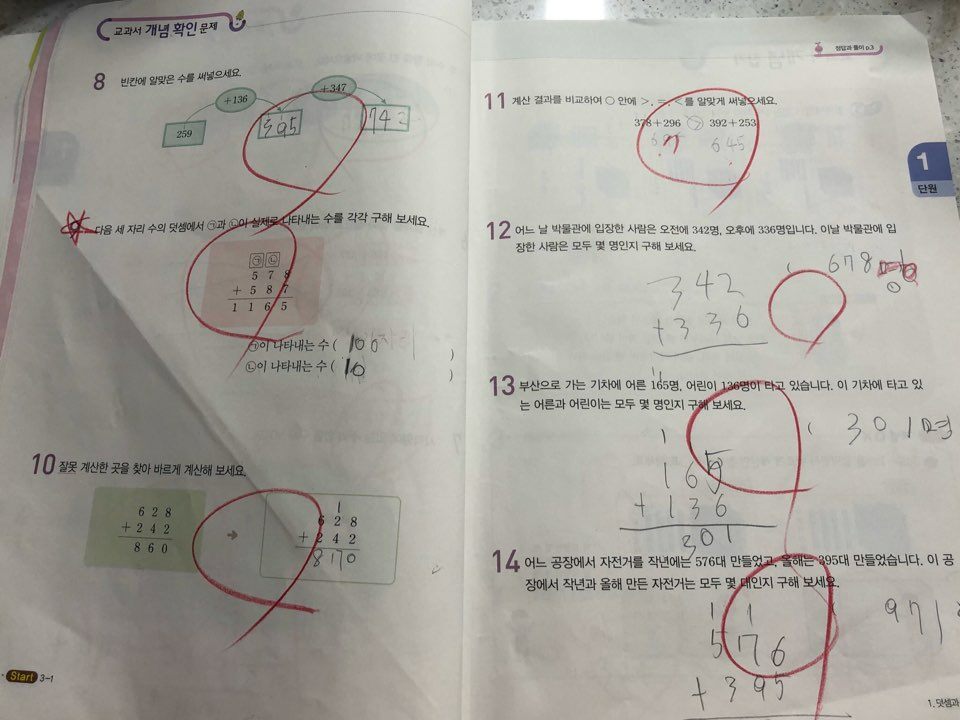 교과서 개념 확인 문제
8 빈칸에 알맞은 수를 써넣으세요.
+136
+347
259
395
742
다음 세 자리 수의 덧셈에서 ㉠과 ㉡이 실제로 나타내는 수를 각각 구해 보세요.
㉠ ㉡
5 7 8
+ 5 8 7
1 1 6 5
㉠이 나타내는 수 ( 100 )
㉡이 나타내는 수 ( 10 )
10 잘못 계산한 곳을 찾아 바르게 계산해 보세요.
6 2 8
+ 2 4 2
8 6 0
➔
1
6 2 8
+ 2 4 2
8 7 0
Start 3-1
정답과 풀이 p.3
11 계산 결과를 비교하여 ○ 안에 >, =, <를 알맞게 써넣으세요.
378+296 > 392+253
645
1
단원
12 어느 날 박물관에 입장한 사람은 오전에 342명, 오후에 336명입니다. 이날 박물관에 입
장한 사람은 모두 몇 명인지 구해 보세요.
( 678
342
+336
13 부산으로 가는 기차에 어른 165명, 어린이 136명이 타고 있습니다. 이 기차에 타고 있
는 어른과 어린이는 모두 몇 명인지 구해 보세요.
( 301명
1
165
+136
301
14 어느 공장에서 자전거를 작년에는 576대 만들었고, 올해는 395대 만들었습니다. 이 공
장에서 작년과 올해 만든 자전거는 모두 몇 대인지 구해 보세요.
971
1 1
576
+395
1. 덧셈과